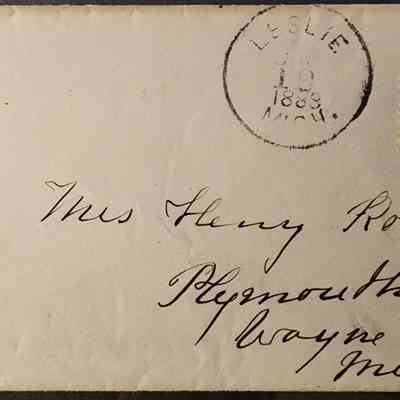 LESLIE
18
1883
MICH.
Mrs Henry Ro
Plymouth
Wayne
Mi